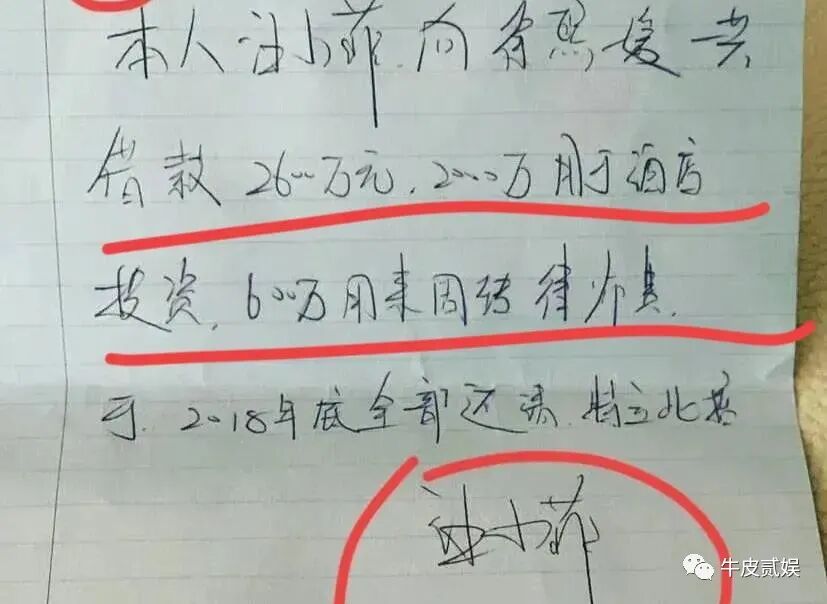 本人汪小菲向徐熙媛共
借款2600万元,2000万用于酒店
投资,600万用来周转律师费.
于.2018年底全部还清.特立此据
汪小菲
牛皮贰娱